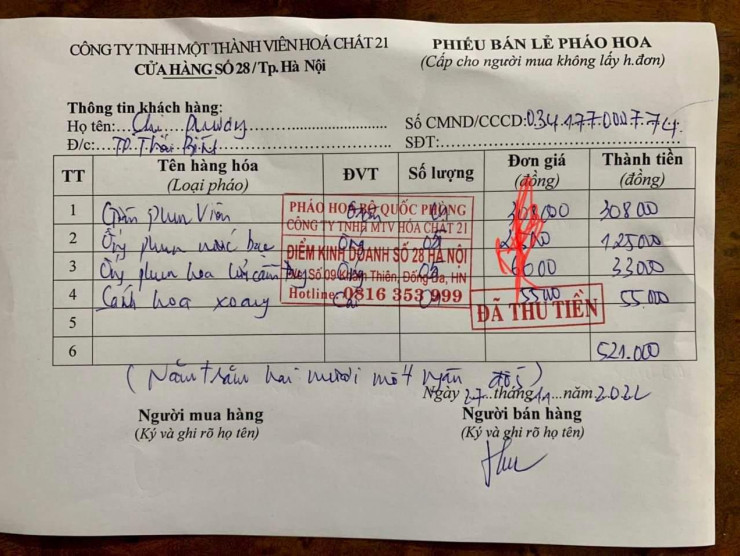 CÔNG TY TNHH MỘT THÀNH VIÊN HOÁ CHẤT 21
CỬA HÀNG SỐ 28/Tp. Hà Nội
PHIẾU BÁN LẺ PHÁO HOA
(Cấp cho người mua không lấy h.đơn)
Thông tin khách hàng:
Họ tên: Chị
Số CMND/CCCD:
Đ/c: TP. Thái Bình
SĐT:
TT Tên hàng hóa (Loại pháo) ĐVT Số lượng Đơn giá (đồng) Thành tiền (đồng)
1 Giàn phun viên 308000 308000
2 Ống phun nước bạc 125000
3 Ống phun hoa lửa cầm tay 33000
4 Cánh hoa xoay Cái 55.000
5
6 521.000
PHÁO HOA BỘ QUỐC PHÒNG
CÔNG TY TNHH MTV HÓA CHẤT 21
ĐIỂM KINH DOANH SỐ 28 HÀ NỘI
Số 09 Khâm Thiên, Đống Đa, HN
Hotline: 0816 353 999
ĐÃ THU TIỀN
(Năm trăm hai mươi mốt ngàn đồng)
Ngày 27 tháng 11 năm 2022
Người mua hàng
(Ký và ghi rõ họ tên)
Người bán hàng
(Ký và ghi rõ họ tên)